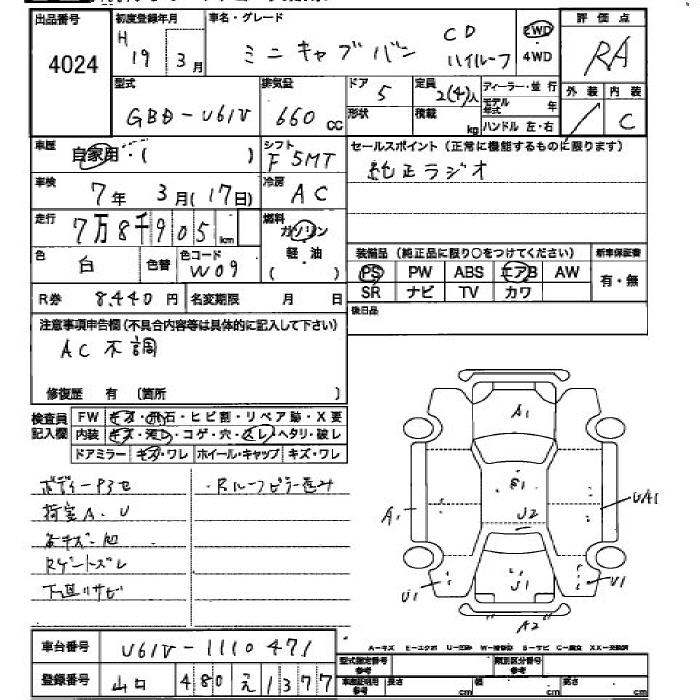 出品番号
4024
初度登録年月
H 19年 3月
車名・グレード
ミニキャブバン CD ハイルーフ
2WD
・
4WD
評価点
RA
外装 内装
C
型式
GBD-U61V
排気量
660 cc
ドア
5
形状
定員
2(4)人
積載
kg
ディーラー・並行
モデル年式 年
ハンドル 左・右
車歴
自家用・( )
シフト
F5MT
車検
7年 3月(17日)
冷房
AC
走行
7万8千905km
燃料
ガソリン
・
軽油
( )
色
白
色替
色コード
W09
R券 8.440円
名変期限 月 日
セールスポイント(正常に機能するものに限ります)
純正ラジオ
装備品(純正品に限り○をつけてください)
新車保証書
PS PW ABS エアB AW
SR ナビ TV カワ
有・無
後日品
注意事項申告欄(不具合内容等は具体的に記入して下さい)
AC不調
修復歴 有 〔箇所 〕
検査員記入欄
FW キズ・飛石・ヒビ割・リペア跡・X要
内装 キズ・汚レ・コゲ・穴・スレ・ヘタリ・破レ
ドアミラー キズ・ワレ ホイール・キャップ キズ・ワレ
ボディーP3セ
荷室A.U
各キズ・凹
Rゲートズレ
下廻リサビ
・Rルーフピラー歪み
A1
B1
U2
A1
UA1
U1
U1
U1
A2
車台番号 U61V-1110471
登録番号 山口 480 え 1377
A-キズ E-エクボ U-凹み W-補修跡 B-サビ C-腐食 XX-交換済
型式指定番号
参考
類別区分番号
参考
車庫証明用
参考
長さ cm
幅 cm
高さ cm